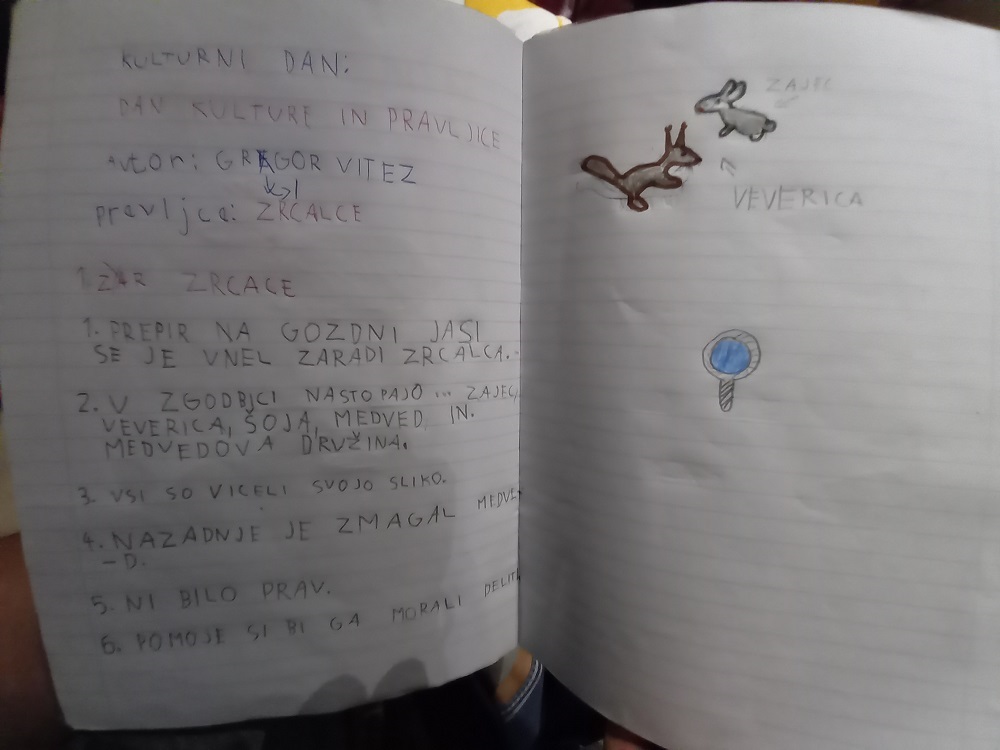 KULTURNI DAN:
DAN KULTURE IN PRAVLJICE
avtor: GREGOR VITEZ
pravljca: ZRCALCE
ZRCACE
1. PREPIR NA GOZDNI JASI
SE JE VNEL ZARADI ZRCALCA.
2. V ZGODBICI NASTOPAJO ... ZAJEC,
VEVERICA, ŠOJA, MEDVED IN.
MEDVEDOVA DRUŽINA.
3. VSI SO VICELI SVOJO SLIKO.
4. NAZADNJE JE ZMAGAL MEDVE
-D.
5. NI BILO PRAV.
6. POMOJE SI BI GA MORALI DELITI
ZAJEC
VEVERICA